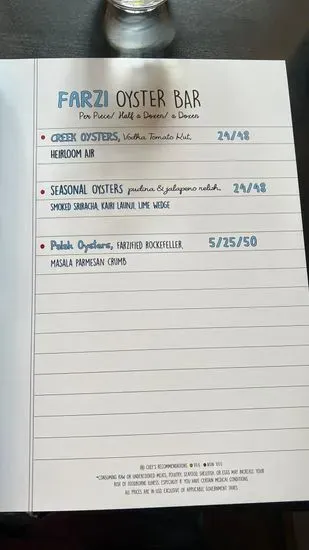 FARZI OYSTER BAR
Per Piece/ Half a Dozen/ a Dozen
CREEK OYSTERS, Vodka Tomato Kut, 24/48
HEIRLOOM AIR
SEASONAL OYSTERS pudina & jalapeno relish, 24/48
SMOKED SRIRACHA, KAIRI LAUNJI, LIME WEDGE
Petch Oysters, FARZIFIED ROCKEFELLER, 5/25/50
MASALA PARMESAN CRUMB
CHEF'S RECOMMENDATIONS VEG NON VEG
*CONSUMING RAW OR UNDERCOOKED MEATS, POULTRY, SEAFOOD, SHELLFISH, OR EGGS MAY INCREASE YOUR
RISK OF FOODBORNE ILLNESS, ESPECIALLY IF YOU HAVE CERTAIN MEDICAL CONDITIONS.
ALL PRICES ARE IN USD, EXCLUSIVE OF APPLICABLE GOVERNMENT TAXES.